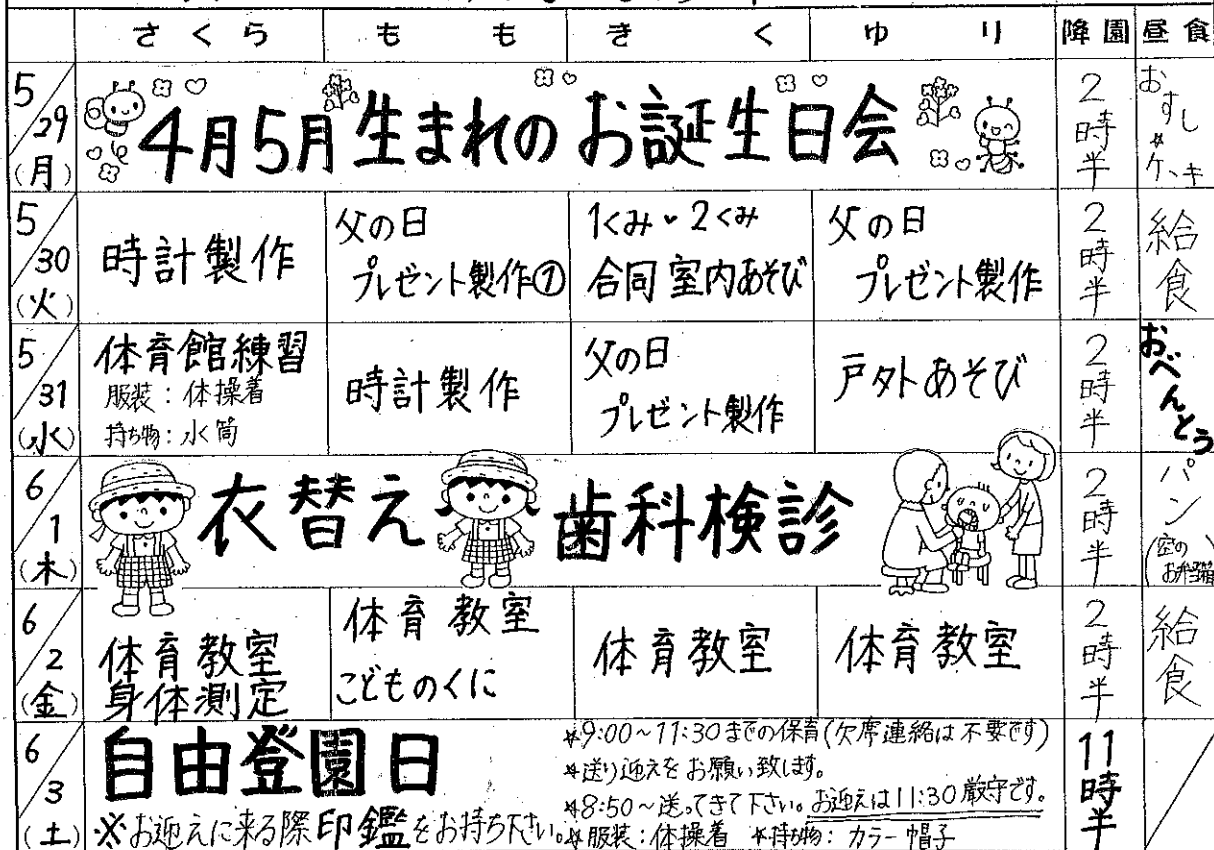 さくら もも きく ゆり 降園 昼食
5/29(月) 4月5月生まれのお誕生日会 2時半 おすし*ケーキ
5/30(火) 時計製作 父の日 プレゼント製作① 1くみ・2くみ 合同室内あそび 父の日 プレゼント製作 2時半 給食
5/31(水) 体育館練習 時計製作 父の日 プレゼント製作 戸外あそび 2時半 おべんとう
服装:体操着
持ち物:水筒
6/1(木) 衣替え 歯科検診 2時半 パン(空のお弁当箱)
6/2(金) 体育教室 身体測定 体育教室 こどものくに 体育教室 体育教室 2時半 給食
6/3(土) 自由登園日 11時半
※お迎えに来る際印鑑をお持ち下さい。
*9:00~11:30までの保育(欠席連絡は不要です)
*送り迎えをお願い致します。
*8:50~送ってきて下さい。お迎えは11:30厳守です。
*服装:体操着 *持ち物:カラー帽子